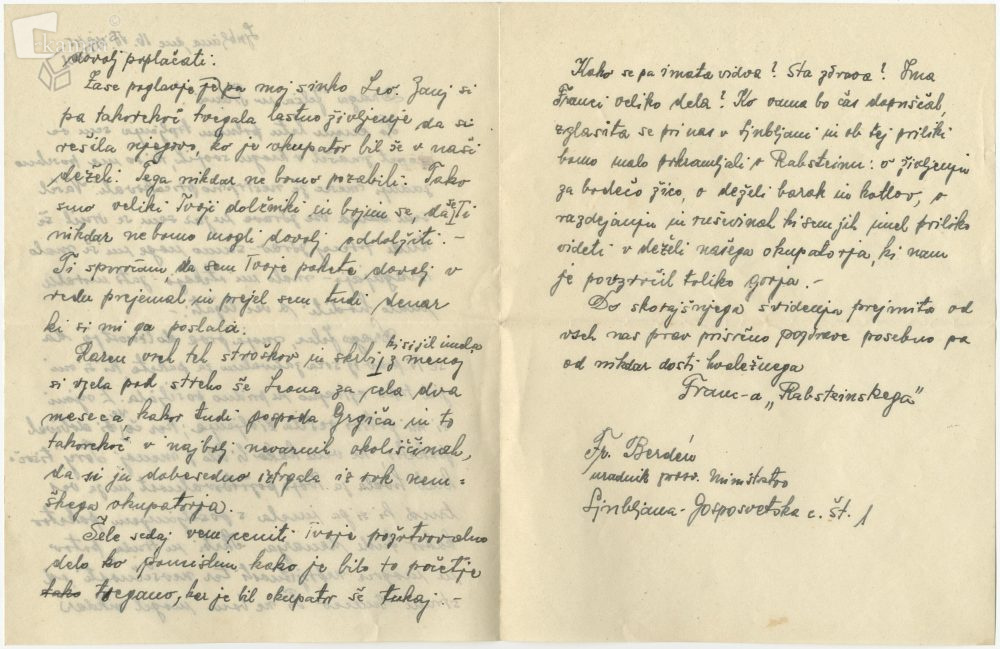 kamra
©
dovolj poplačati.
Zase poglavje je pa moj sinko Leo. Zanj si
pa takorekoč tvegala lastno življenje da si
rešila njegovo, ko je okupator bil še v naši
deželi. Tega nikdar ne bomo pozabili. Tako
smo veliki Tvoji dolžniki in bojim se, da se Ti
nikdar ne bomo mogli dovolj oddolžiti. –
Ti sporočam, da sem Tvoje pakete dovolj v
redu prejemal in prejel sem tudi denar
ki si mi ga poslala.
Razen vseh teh stroškov in skrbi, ki si jih imela z menoj
si vzela pod streho še Leona za cela dva
meseca kakor tudi gospoda Grgiča in to
takorekoč v najbolj nevarnih okoliščinah,
da si ju dobesedno iztrgala iz rok nem=
škega okupatorja.
Šele sedaj vem ceniti Tvoje požrtvovalno
delo ko pomislim kako je bilo to početje
tako tvegano, ker je bil okupator še tukaj. –
Kako se pa imata vidva? Sta zdrava? Ima
Franci veliko dela? Ko vama bo čas dopuščal,
zglasita se pri nas v Ljubljani in ob tej priliki
bomo malo pokramljali o Rabsteinu: o življenju
za bodečo žico, o deželi barak in kotlov, o
razdejanju in ruševinah ki sem jih imel priliko
videti v deželi našega okupatorja, ki nam
je povzročil toliko gorja. –
Do skorajšnjega svidenja prejmita od
vseh nas prav prisrčno pozdrave posebno pa
od nikdar dosti hvaležnega
Franc-a „Rabsteinskega“
Fr. Berdén
uradnik prosv. Ministrstvo
Ljubljana - Gosposvetska c. št. 1